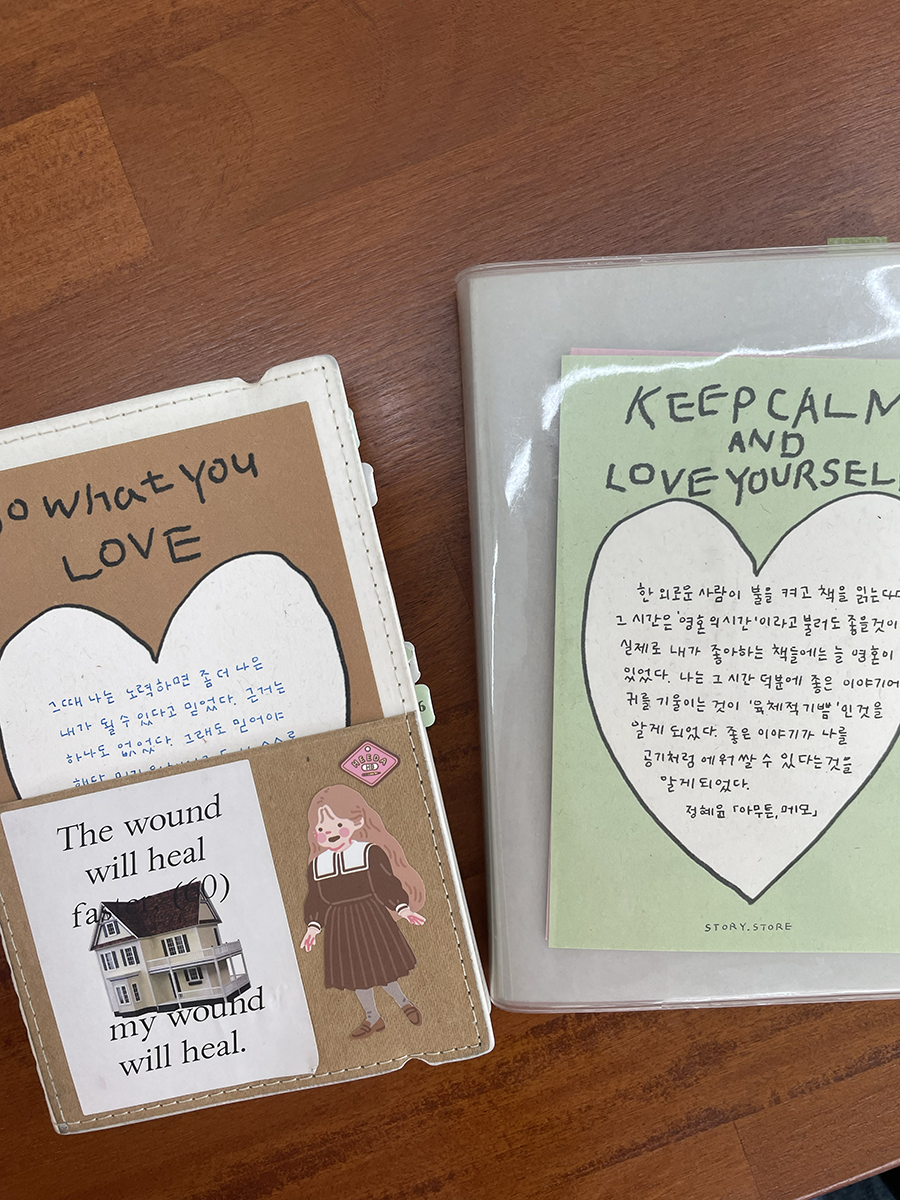 what you
LOVE
그때 나는 노력하면 좀 더 나은
내가 될 수 있다고 믿었다. 근거는
하나도 없었다. 그래도 믿어야
했다.
The wound
will heal
(60)
my wound
will heal.
HEEDA
6
KEEP CALM
AND
LOVE YOURSELF
한 외로운 사람이 불을 켜고 책을 읽는다면
그 시간은 '영혼의 시간'이라고 불러도 좋을것이
실제로 내가 좋아하는 책들에는 늘 영혼이
있었다. 나는 그 시간 덕분에 좋은 이야기에
귀를 기울이는 것이 '육체적기쁨'인 것을
알게 되었다. 좋은 이야기가 나를
공기처럼 에워쌀 수 있다는것을
알게 되었다.
정혜윤 「아무튼, 메모」
STORY.STORE